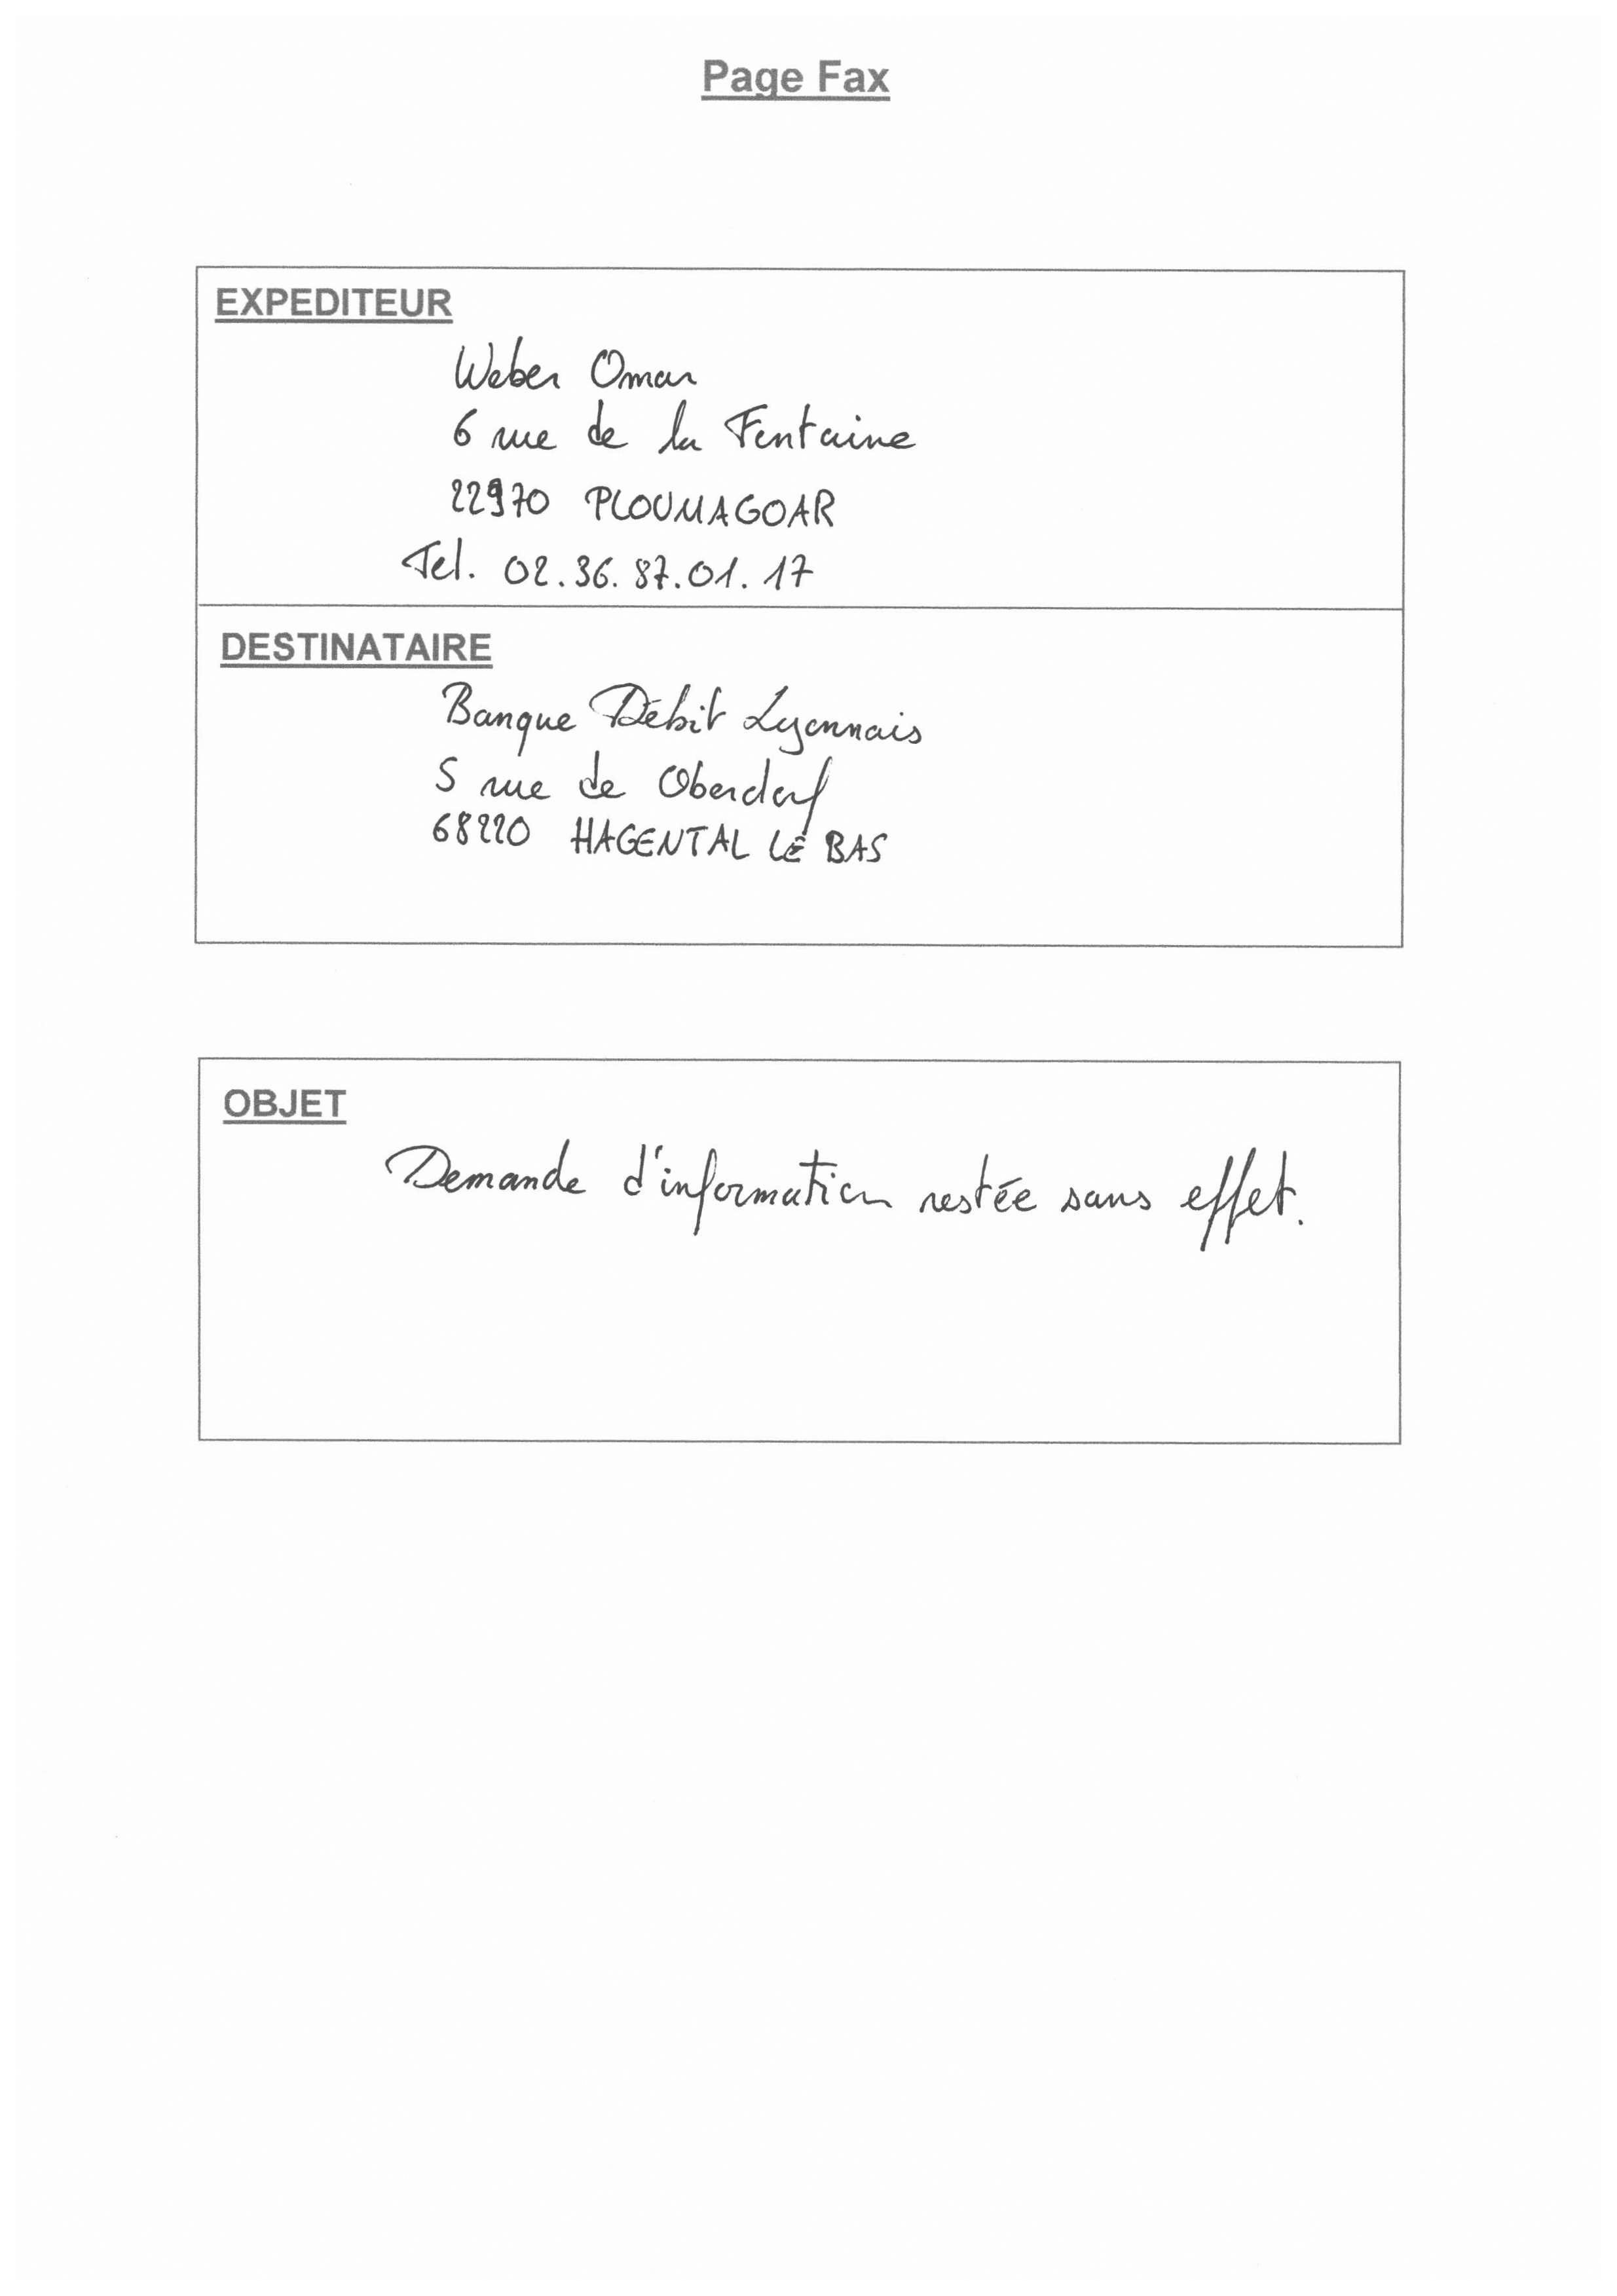 Page Fax
EXPEDITEUR
Weber Omar
6 rue de la Fontaine
22970 PLOUMAGOAR
Tel. 02.36.87.01.17
DESTINATAIRE
Banque Débit Lyonnais
5 rue de Oberdorf
68220 HAGENTAL LE BAS
OBJET
Demande d'information restée sans effet.